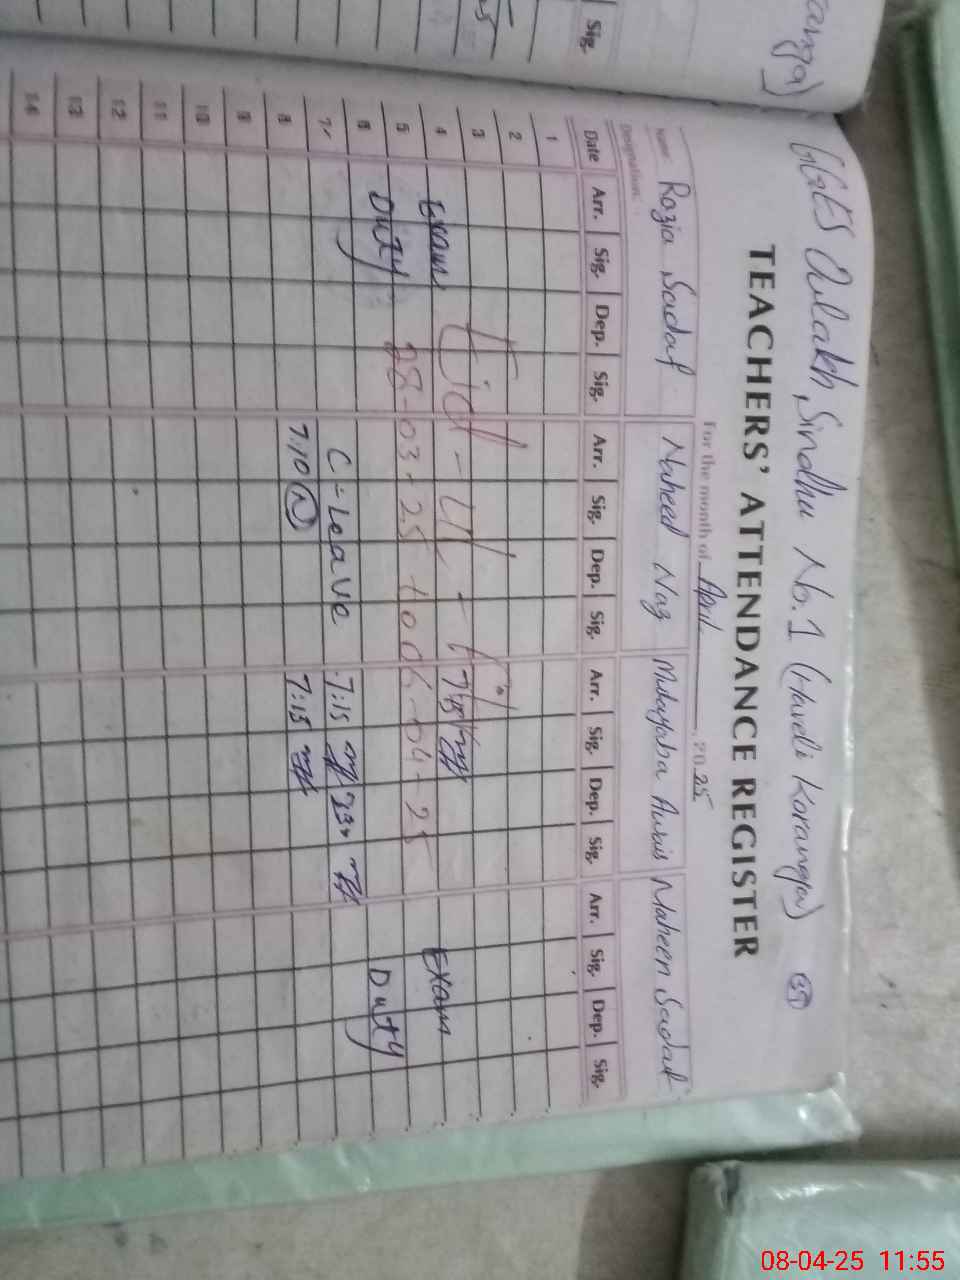 Sindhu No. 1 (Haveli Koranga)
TEACHERS' ATTENDANCE REGISTER
For the month of April, 2025
Name: Rozia Sadaf Naheed Naz Awais Maheen Sadaf
Designation:
Date Arr. Sig. Dep. Sig. Arr. Sig. Dep. Sig. Arr. Sig. Dep. Sig. Arr. Sig. Dep. Sig.
1
2
3 Eid-Ul-
4 Exam Exam
5 Duty 28-03-25 to 06-04-25 Duty
6
7 C-Leave 7:15
8 7:10 7:15
9
10
11
12
13
14
Sig.
08-04-25 11:55